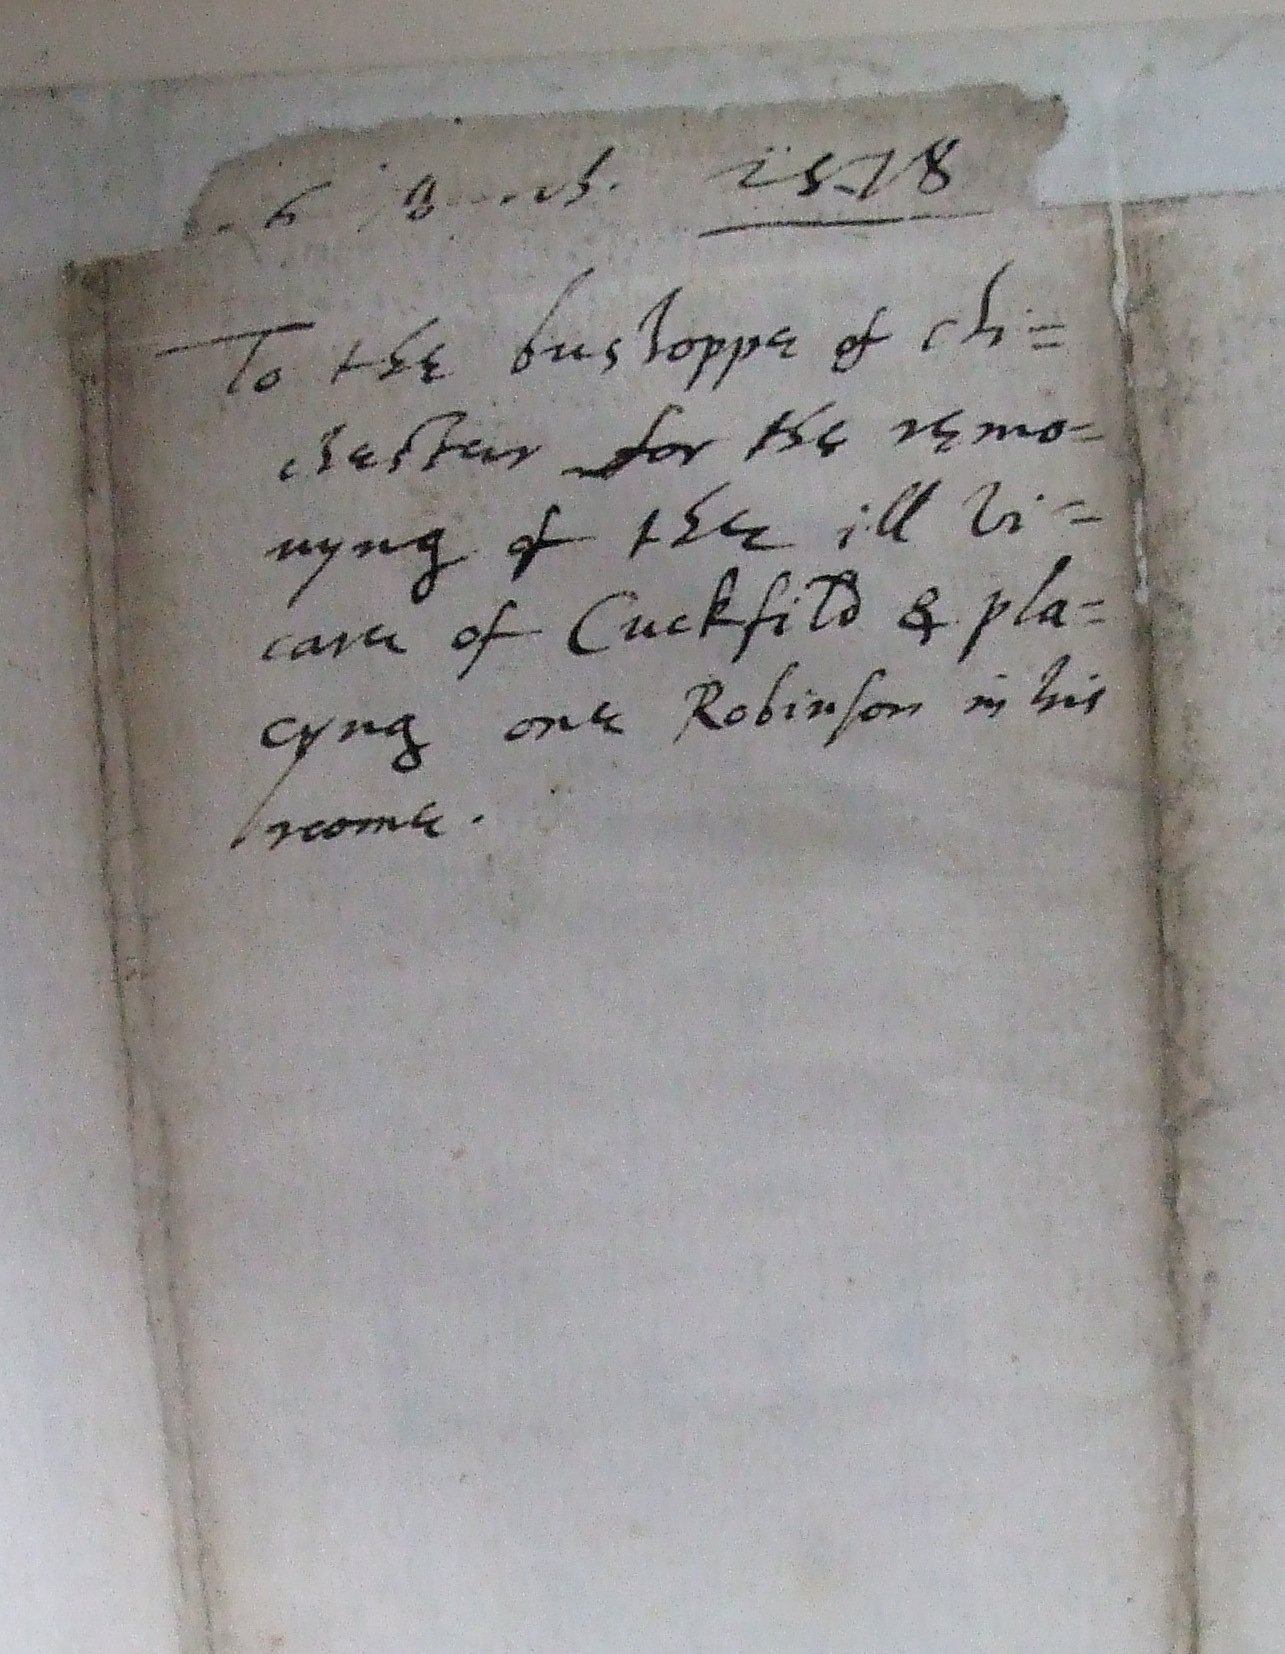 1578
To the busshoppe of chi=
chester for the remo=
uyng of the ill vi=
care of Cuckfild & pla=
cyng one Robinson in his
roome.